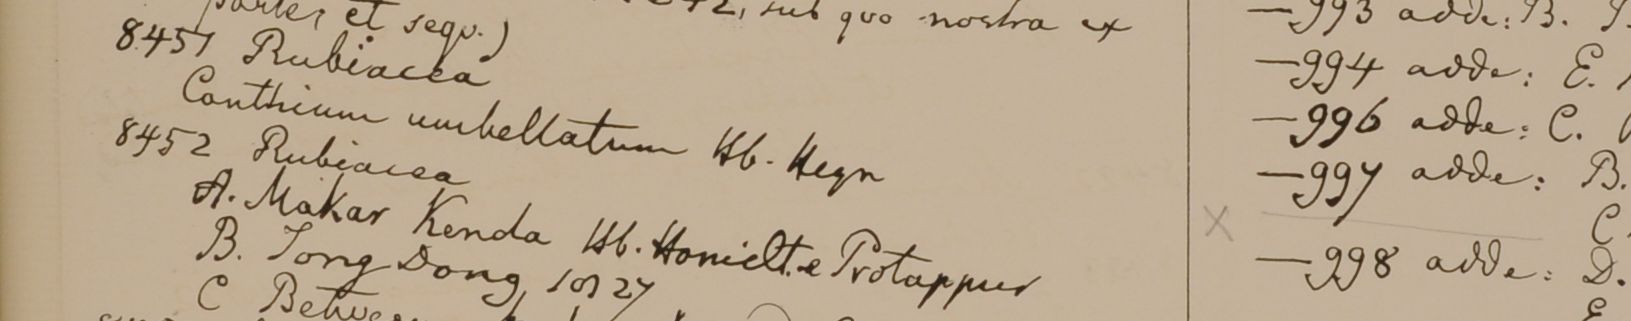 partes et sequ.) sub quo nostra ex
8451 Rubiacea
Canthium umbellatum Hb. Heyn
8452 Rubiacea
A. Makar Kenda Hb. Hamilt. e Protappur
B. Tong Dong 1827
C Between
—993 adde: B.
—994 adde: E.
—996 adde: C.
—997 adde: B.
X C
—998 adde: D.
E